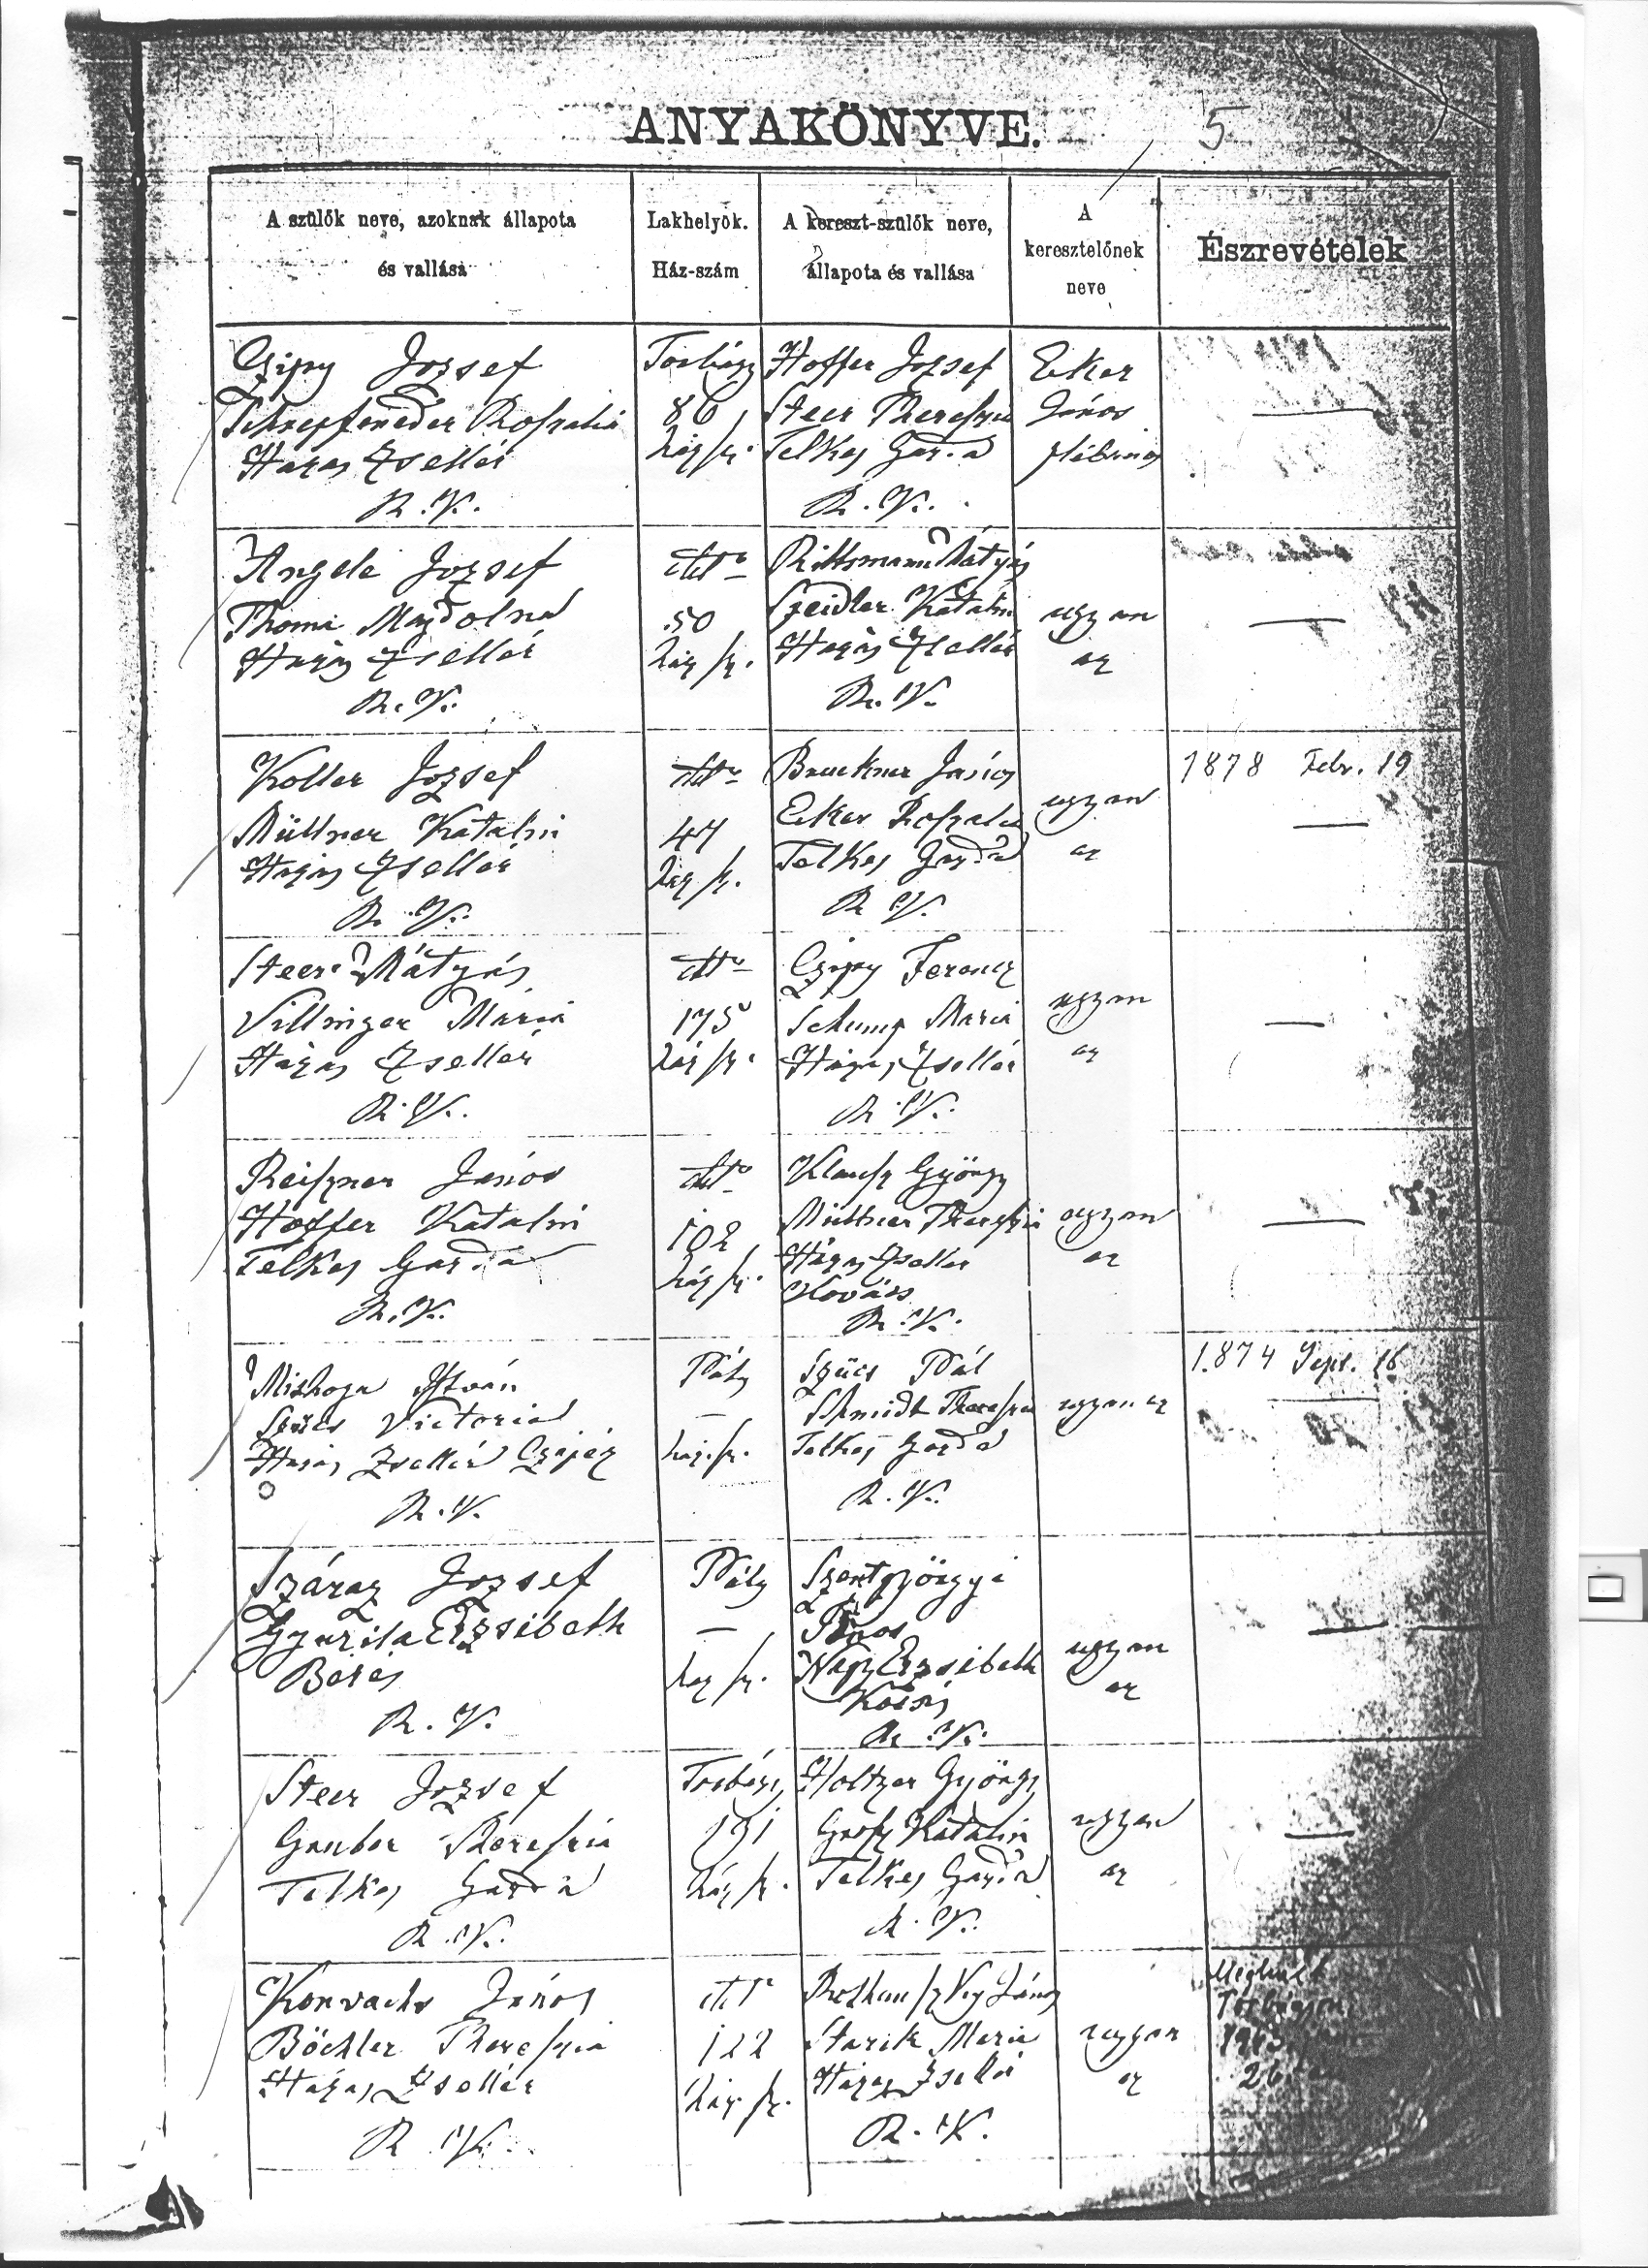 ANYAKÖNYVE. 5
A szülők neve, azoknak állapota
és vallása
Lakhelyök.
Ház-szám
A kereszt-szülők neve,
állapota és vallása
A
keresztelőnek
neve
Észrevételek
Czipy József
Roszalia
Házas Zsellér
R. K.
Torbágy
86
ház sz.
Hoffer József
Steer Thereszia
Telkes Gazda
R. K.
Eker
János
plébános
Angele József
Thoma Magdolna
Házas Zsellér
R. K.
dtto
50
ház sz.
Mátyás
Szeidler Katalin
Házas Zsellér
R. K.
ugyan
az
Koller József
Müllner Katalin
Házas Zsellér
R. K.
dtto
47
ház sz.
Bruckner János
Eker Rosalia
Telkes Gazda
R. K.
ugyan
az
1878 Febr. 19
Steer Mátyás
Villinger Mária
Házas Zsellér
R. K.
dtto
175
ház sz.
Czipy Ferencz
Schump Maria
Házas Zsellér
R. K.
ugyan
az
Reiszner János
Hoffer Katalin
Telkes Gazda
R. K.
dtto
102
ház sz.
Klausz György
Müllner Thereszia
Házas Zsellér
Kovács
R. K.
ugyan
az
István
Szücs Victoria
Házas Zsellér
R. K.
Páty
—
ház sz.
Szücs Pál
Schmidt Thereszia
Telkes Gazda
R. K.
ugyan az
1874 Sept. 16
Száraz József
Erzsébeth
Béres
R. K.
Páty
—
ház sz.
Szentgyörgyi
János
Nagy Erzsébeth
Kocsis
R. K.
ugyan
az
Steer József
Gruber Thereszia
Telkes Gazda
R. K.
Torbágy
191
ház sz.
Holtzer György
Grósz Katalin
Telkes Gazda
R. K.
ugyan
az
Konrads János
Böchler Thereszia
Házas Zsellér
R. K.
dtto
122
ház sz.
János
Starik Maria
Házas Zsellér
R. K.
ugyan
az
Meghalt
Torbágyon
26